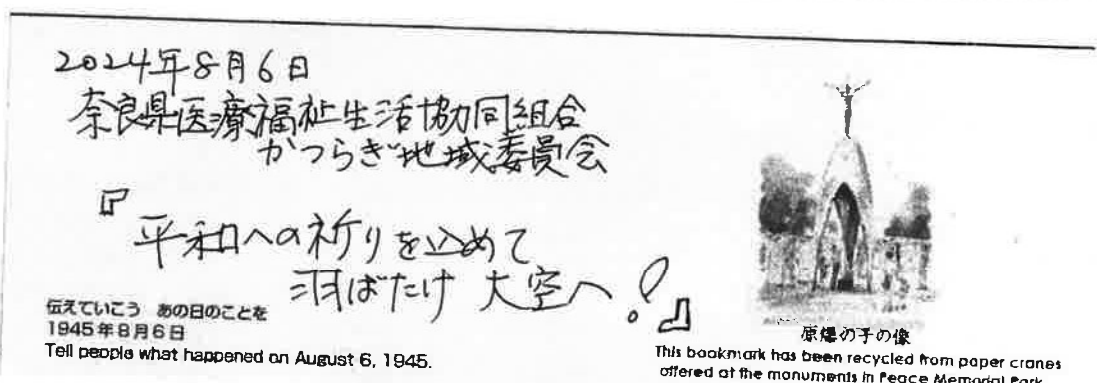 2024年8月6日
奈良県医療福祉生活協同組合
かつらぎ地域委員会
『平和への祈りを込めて
羽ばたけ 大空へ!』
伝えていこう あの日のことを
1945年8月6日
Tell people what happened on August 6, 1945.
原爆の子の像
This bookmark has been recycled from paper cranes
offered at the monuments in Peace Memorial Park